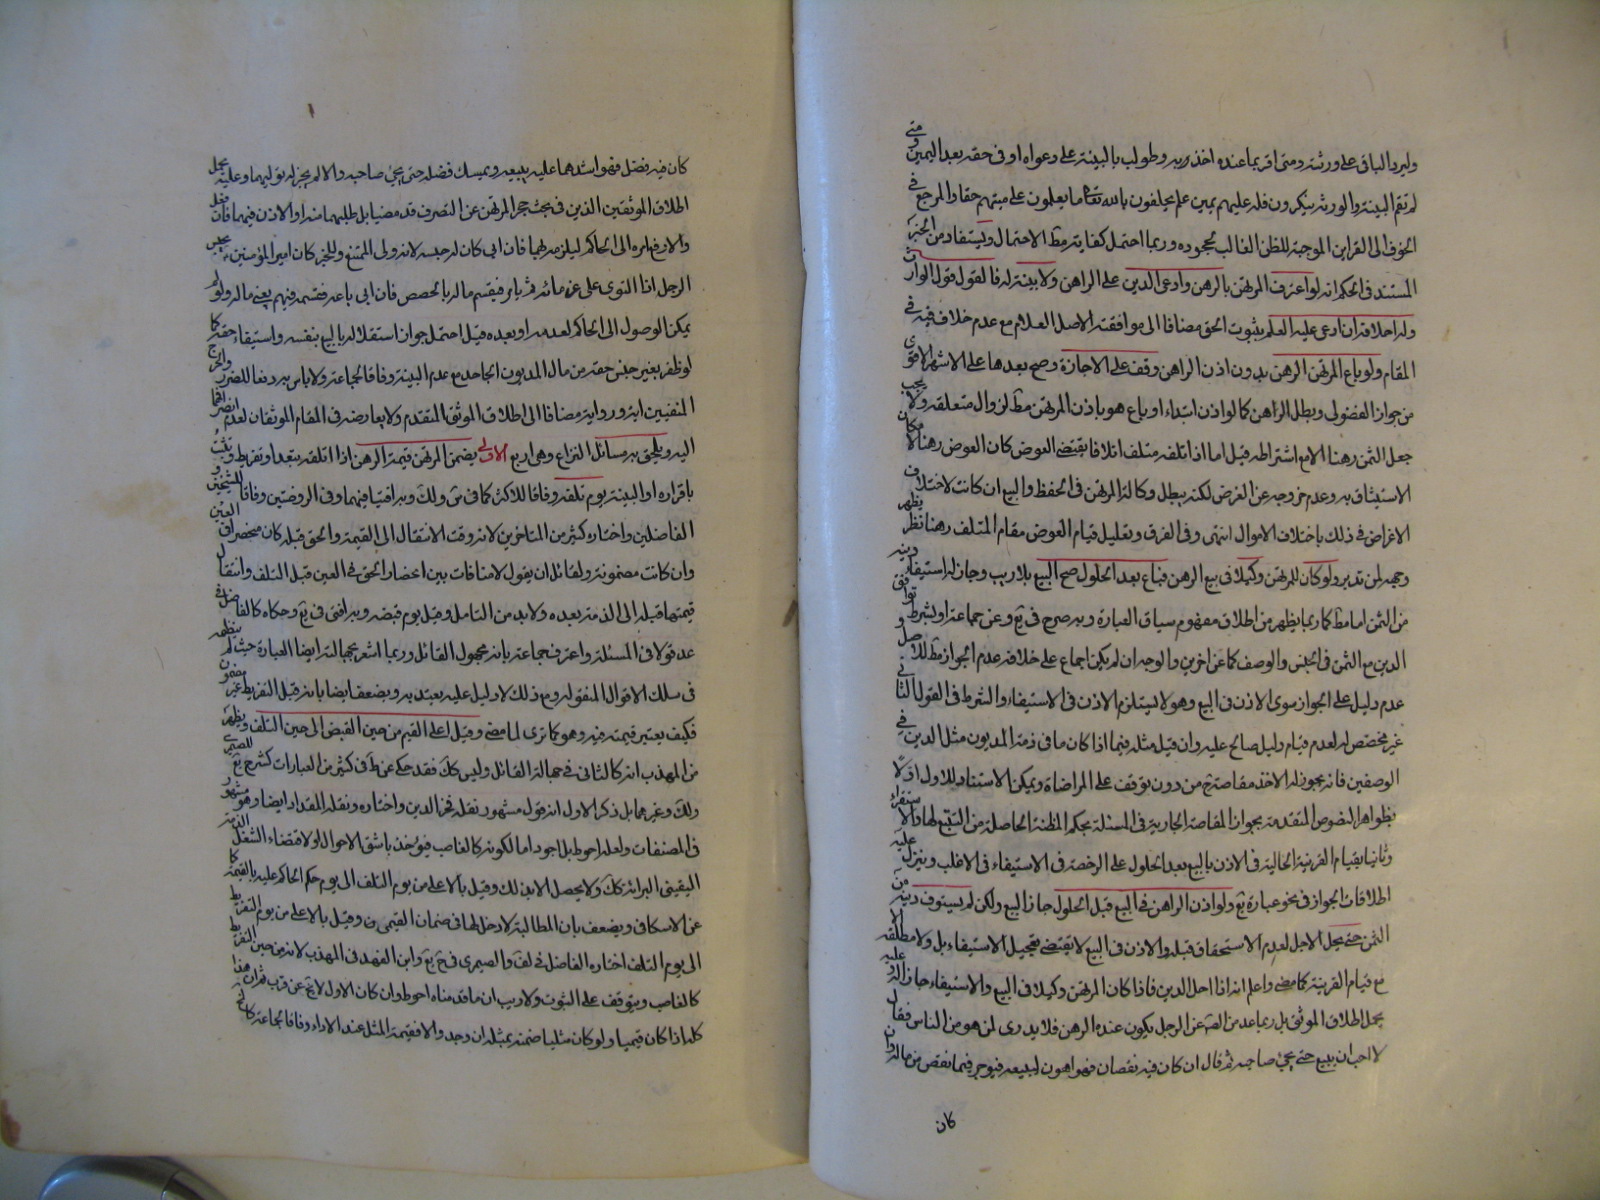 وليرد الباقي على ورثته ومتى اقر بما عنده اخذ وبه وطولب بالبينة على دعواه او في حقه بعد اليمين ومتى
لم تقم البينة والورثة ينكرون فله عليهم يمين علم يحلفون بالله تعالى ما يعلمون على ميتهم حقا والمرجع في
الخوف الى القراين الموجبة للظن الغالب بجحوده وربما احتمل كفاية مط الاحتمال ويستفاد من الخبر
المستند في الحكم انه لو اعترف المرتهن بالرهن وادعى الدين على الراهن ولا بينة له فالقول قول الوارث
وله احلافه ان ادعى عليه العلم بثبوت الحق مضافا الى موافقته الاصل العدم مع عدم خلاف فيه في
المقام ولو باع المرتهن الرهن بدون اذن الراهن وقف على الاجازة وصح بعدها على الاشهر الاقوى
من جواز الفضولي وبطل الراهن كما لو اذن ابتداء او باع هو باذن المرتهن مط لزوال متعلقه ولا يجب
جعل الثمن رهنا الا مع اشتراطه قيل اما اذا تلفه متلف اتلافا يقتضي العوض كان العوض رهنا لامكان
الاستيثاق به وعدم خروجه عن الغرض لكنه يبطل وكالة المرتهن في الحفظ والبيع ان كانت لاختلاف
الاغراض في ذلك باختلاف الاموال انتهى وفي الفرق وتعليل قيام العوض مقام المتلف رهنا نظر يظهر
وجهه لمن تدبر ولو كان المرتهن وكيلا في بيع الرهن فباع بعد الحلول صح البيع بلا ريب وجاز له استيفاء دينه
من الثمن اما مط كما ربما يظهر من اطلاق مفهوم سياق العبارة وبه صرح في يع وعن جماعة او بشرط توافق
الدين مع الثمن في الجنس والوصف كما عن اخرين والوجه ان لم يكن اجماع على خلافه عدم الجواز مط للاصل و
عدم دليل على الجواز سوى الاذن في البيع وهو لا يستلزم الاذن في الاستيفاء والشرط في القول الثاني
غير مختص له لعدم قيام دليل صالح عليه وان قيل مثله فيما اذا كان ما في ذمة المديون مثل الدين في
الوصفين فانه يجوز له الاخذ مقاصة من دون توقف على المراضاة ويمكن الاستناد للاول اولا
بظواهر النصوص المتقدمة بجواز المقاصة الجارية في المسئلة بحكم المظنة الحاصلة من التتبع لها والاستقراء
وثانيا بقيام القرينة الحالية في الاذن بالبيع بعد الحلول على الرخصة في الاستيفاء في الاغلب وينزل عليه
اطلاقات الجواز في نحو عبارة يع ولو اذن الراهن في البيع قبل الحلول جاز البيع ولكن لم يستوف دينه من
الثمن حتى يحل الاجل لعدم الاستحقاق قبله والاذن في البيع لا يقتضي تعجيل الاستيفاء بل ولا مطلقه الا
مع قيام القرينة كما مضى واعلم انه اذا احل الدين فاذا كان المرتهن وكيلا في البيع والاستيفاء جاز له وعليه
يحمل اطلاق الموثق بل ربما عد من الصحيح عن الرجل يكون عنده الرهن فلا يدري لمن هو من الناس فقال
لا احب ان يبيع حتى يجئ صاحبه ثم قال ان كان فيه نقصان فهو اهون لبيعه فيوجر فيما نقص من ماله وان
كان
كان فيه فضل فهو اشدهما عليه يبيعه ويمسك فضله حتى يجئ صاحبه والا لم يجز له توليهما وعليه يحمل
اطلاق الموثقين الذين في بحث حجر المرتهن عن التصرف قد مضيا بل طلبهما منه او الاذن فيهما فان فعل
والا رفع امره الى الحاكم ليلزمه بهما فان ابى كان له حبسه لانه ولي الممتنع وللخبر كان امير المؤمنين ع يحبس
الرجل اذا التوى على غرمائه ثم يامر فيقسم ماله بالحصص فان ابى باعه فقسمه فيهم يعني ماله ولو لم
يمكن الوصول الى الحاكم لعدمه او بعده قيل احتمل جواز استقلاله بالبيع بنفسه واستيفاء حقه كما
لو ظفر بغير جنس حقه من مال المديون الجاحد مع عدم البينة وفاقا لجماعة ولا باس به دفعا للضرر والحرج
المنفيين اية ورواية مضافا الى اطلاق الموثق المتقدم ولا يعارضه في المقام الموثقان لعدم انصرافهما
اليه ويلحق به مسائل النزاع وهي اربع الاولى يضمن المرتهن قيمة الرهن اذا اتلفه بتعد او تفريط ويثبت
باقراره او البينة يوم تلفه وفاقا للاكثر كما في ش ولك وبه افتيا فيهما وفي الروضتين وفاقا للشيخين و
الفاضلين واختاره كثير من المتاخرين لانه وقت الانتقال الى القيمة والحق قبله كان منحصرا في العين
وان كانت مضمونة ولقائل ان يقول لا منافات بين انحصار الحق في العين قبل التلف وانتقال
قيمتها قبله الى الذمة بعده ولا بد من التامل وقيل يوم قبضه وبه افتى في يع وحكاه كالفاضل في
عد قولا في المسئلة واعترف جماعة بانه مجهول القائل وربما اشعر بجهالته ايضا العبارة حيث لم ينظمه
في سلك الاقوال المنقولة ومع ذلك لا دليل عليه يعتد به ويضعف ايضا بانه قبل التفريط غير مضمون
فكيف يعتبر قيمته فيه وهو كما ترى لما مضى وقيل اعلى القيم من حين القبض الى حين التلف ويظهر
من المهذب انه كالثاني في جهالة القائل وليس كك فقد حكي عن ط في كثير من العبارات كشرح يع للصيمري
ولك وغيرهما بل ذكر الاول انه قول مشهور نقله فخر الدين واختاره ونقله المقداد ايضا وهو مشهور
في المصنفات ولعله احوط بل اجود اما لكونه كالغاصب فيؤخذ باشق الاحوال او لاقتضاء الشغل الذمة
اليقيني البرائة كك ولا يحصل الا بذلك وقيل بالاعلى من يوم التلف الى يوم حكم الحاكم عليه بالقيمة كما
عن الاسكافي ويضعف بان المطالبة لا دخل لها في ضمان القيمي وقيل بالاعلى من يوم التفريط
الى يوم التلف اختاره الفاضل في لف والصيمري في ح يع وابن الفهد في المهذب لانه من حين التفريط
كالغاصب ويتوقف على الثبوت ولا ريب ان ما قدمناه احوط وان كان الاول لا يخ عن قرب ثم ان هذا
كله اذا كان قيميا ولو كان مثليا ضمنه بمثله ان وجد والا فقيمة المثل عند الاداء وفاقا لجماعة كالمحقق